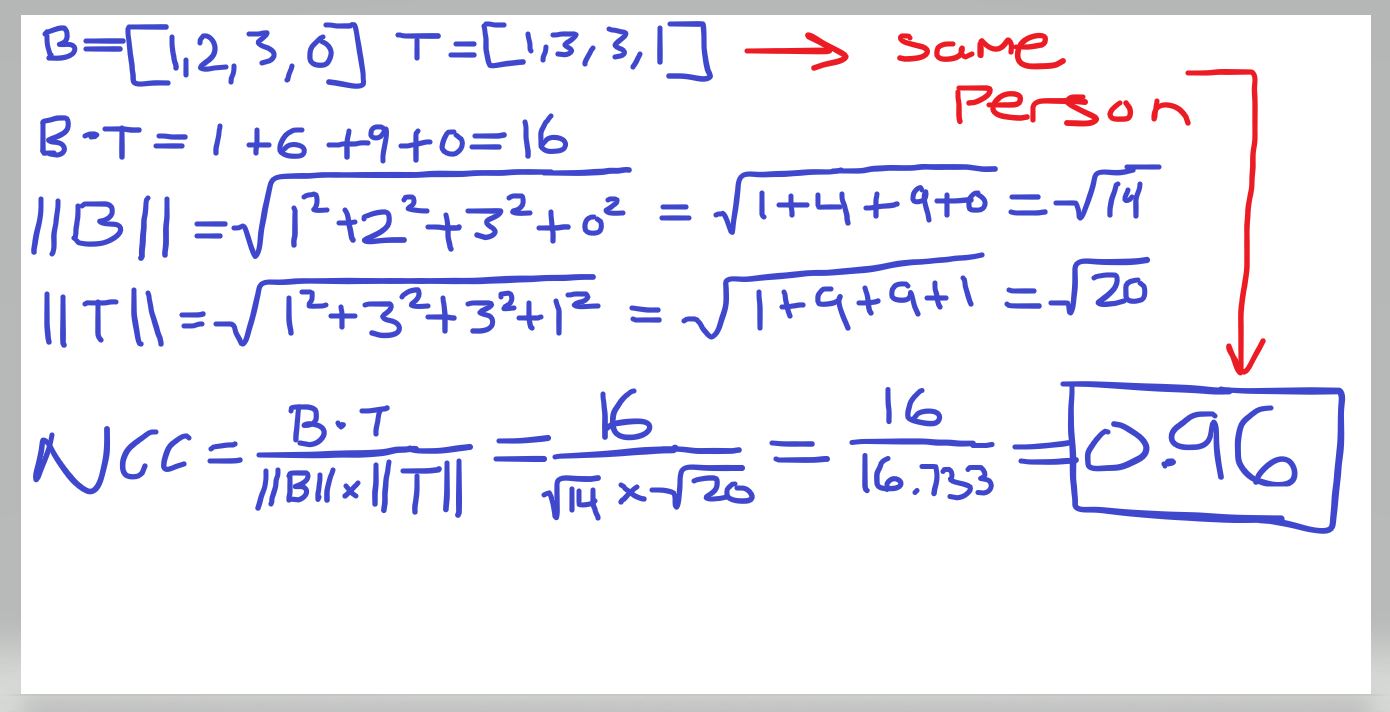 B=[1,2,3,0] T=[1,3,3,1] → Same
Person
B·T = 1+6+9+0=16
||B|| = √1²+2²+3²+0² = √1+4+9+0 = √14
||T|| = √1²+3²+3²+1² = √1+9+9+1 = √20
NCC = B·T / ||B||×||T|| = 16 / √14 × √20 = 16 / 16.733 = 0.96